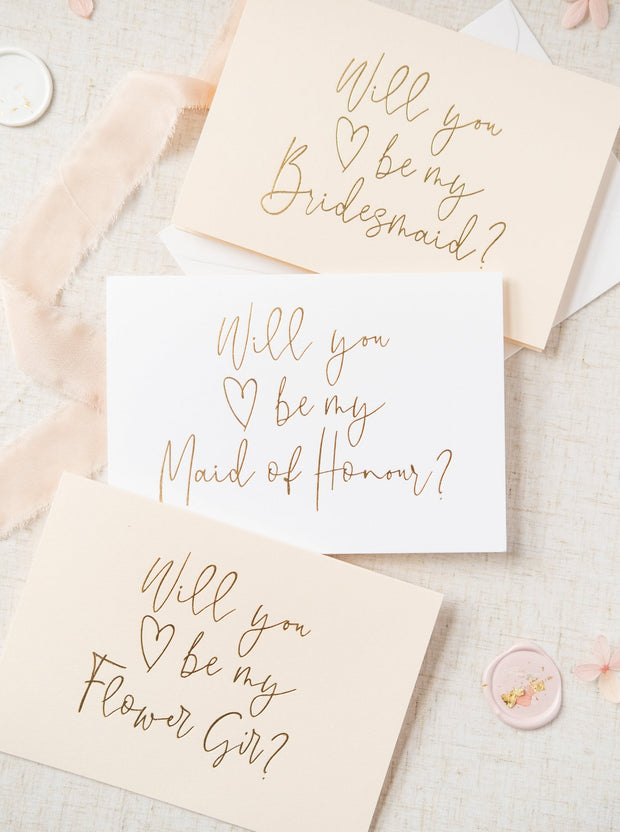 Will you
be my
Bridesmaid?
Will you
be my
Maid of Honour?
Will you
be my
Flower Girl?